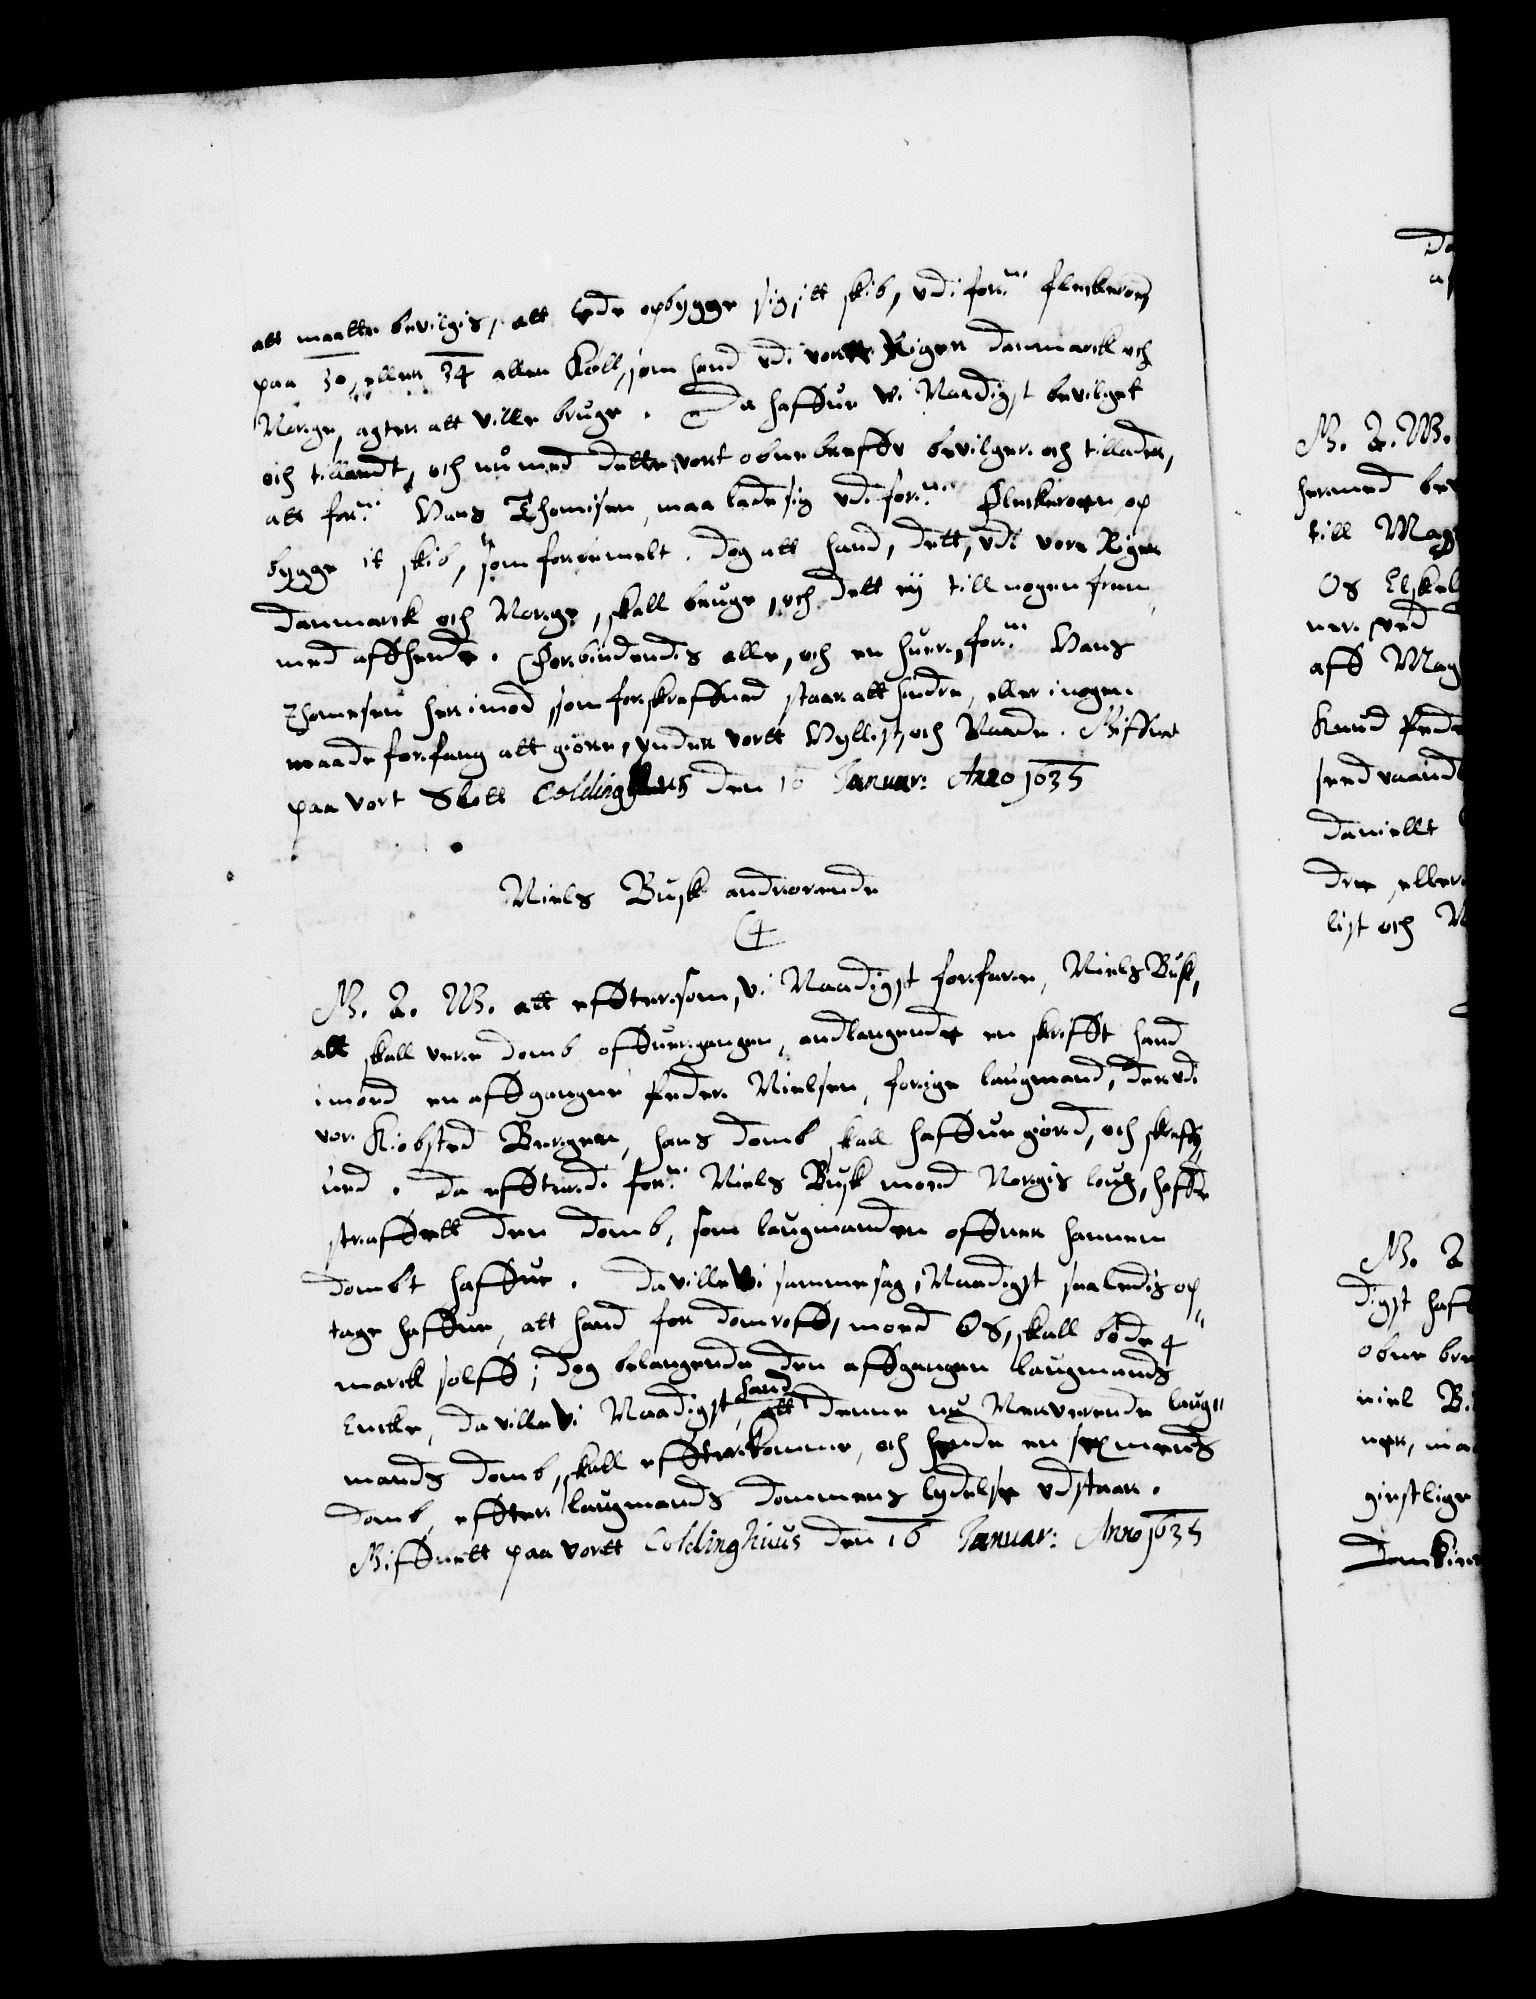 att maatte bevilgis, att lade opbygge sig, itt skib, udi forn: Fleskerøen,
paa 30, eller 34 allen Køll, som hand udi vore Riger Danmarck och
Norge, agter att ville bruge. Da haffue Wi Naadigst bevilget
och tilladt, och nu med dette vort obne breff bevilger och tillader,
att forn: Hans Thomisen, maa lade sig udi forn: Fleskerøen op
bygge it skib, som forbemelt. Dog att hand, dett, udi vore Riger
Danmarck och Norge, skall bruge, och dett ey till nogen frem
med affhende. Forbiudendis alle, och en huer, forn: Hans
Thomesen her imod, som forskreffued staar att hindre, eller i nogen
maade forfang att giøre, under vortt Hyllist, och Naade. Giffuet
paa vort Slott Coldinghuus den 16 Januar: Anno 1635
Niels Busk andrørende
C4
G. A. W. att effttersom, vi Naadigst forfare, Niels Busk,
att skall vere domb offuergangen, andlangende en skrifft hand
imod en affgangne Peder Nielsen, forige laugmand, der udi
vor Kiøbsted Bergen, hans domb skall haffue giord, och skreff-
ued. Da effterdi forn: Niels Busk med Norgis loug, haffr
straffett den domb, som laugmanden offuer hannem
dombt haffue. Da ville Wi samme sag, Naadigst saaledis op
tage haffue, att hand for domroff, med Os, skall bøde 4
marck sølff; Dog belangende den affgangen laugmands
Encke, da ville Vi Naadigst, att hand denne nu Nerverende laug"
mands domb, skall effterkomme, och hende en sex mends
domb, effter laugmands dommens lydelse udstaar.
Giffuett paa vortt Coldinghuus den 16 Januar: Anno 1635
G. A. W.
hermed be
till Mag
Os Elskel
ner ved
aff Mag
Knud Pede
daniellt
dre, eller
list och N
G. A
digst haff
obne bre
niel B.
ner, ma
gistlige
Domkir